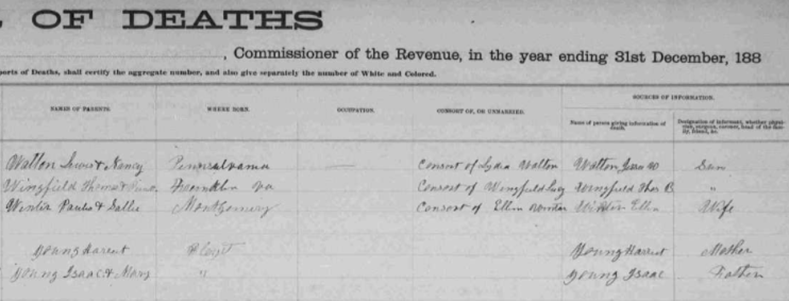 OF DEATHS
, Commissioner of the Revenue, in the year ending 31st December, 188
ports of Deaths, shall certify the aggregate number, and also give separately the number of White and Colored.
SOURCES OF INFORMATION.
NAMES OF PARENTS. WHERE BORN. OCCUPATION. CONSORT OF, OR UNMARRIED. Name of person giving information of death. Designation of informant, whether physician, surgeon, coroner, head of the family, friend, &c.
Walton & Nancy Pennsylvania — Consort of Lydia Walton Walton
Wingfield Franklin Va Consort of Wingfield Lucy Wingfield Thos B "
& Sallie Montgomery Consort of Ellen Ellen Wife
Young Floyd Young Mother
Young Isaac & Mary " Young Isaac Father